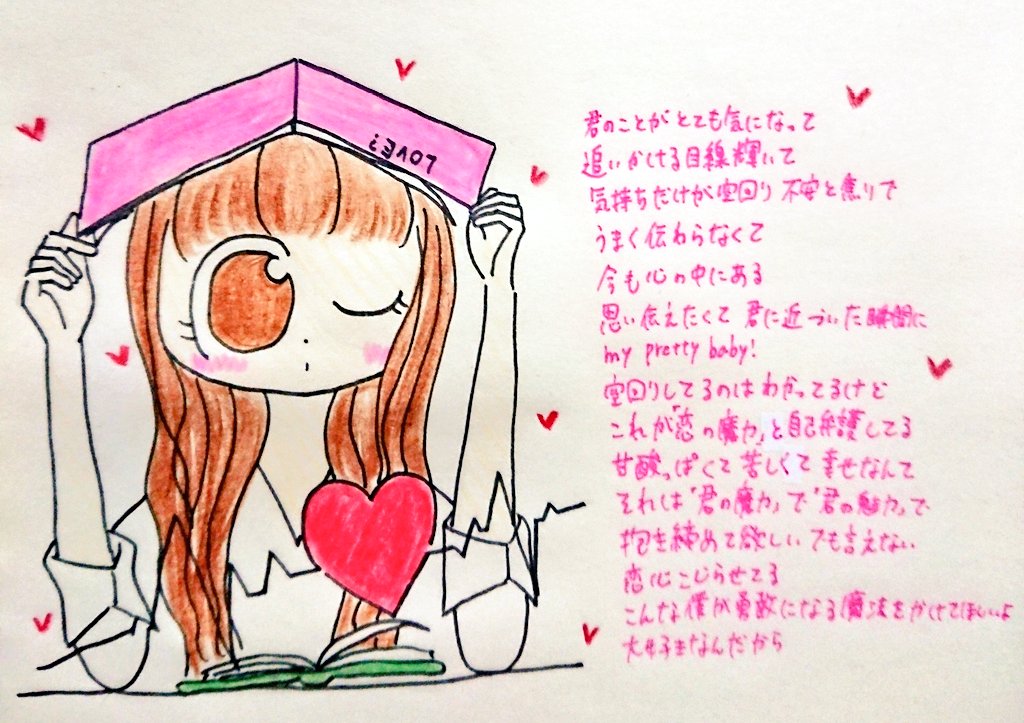 LOVE?
君のことがとても気になって
追いかける目線輝いて
気持ちだけが空回り 不安と焦りで
うまく伝わらなくて
今も心の中にある
思い伝えたくて 君に近づいた瞬間に
my pretty baby!
空回りしてるのはわかってるけど
これが「恋の魔力」と自己弁護してる
甘酸っぱくて苦しくて幸せなんて
それは「君の魔力」で「君の魅力」で
抱き締めて欲しいでも言えない
恋心こじらせてる
こんな僕が勇敢になる魔法をかけてほしいよ
大好きなんだから